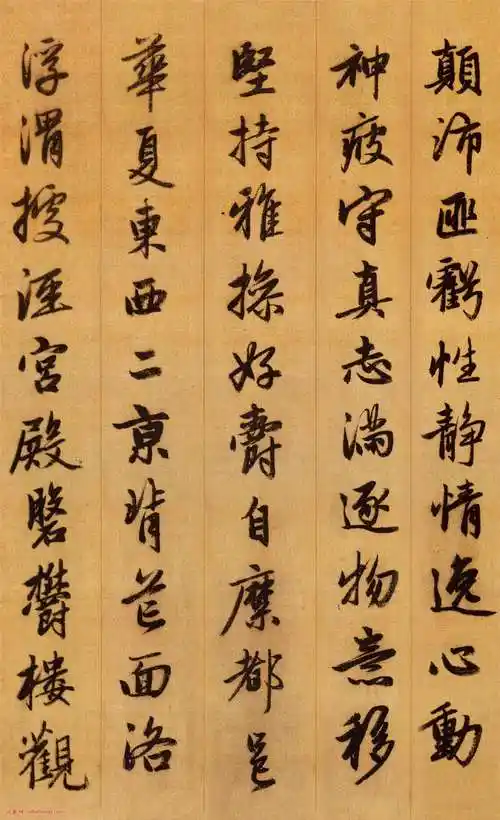 顛沛匪虧性静情逸心動
神疲守真志滿逐物意移
堅持雅操好爵自縻都邑
華夏東西二京背芒面洛
浮渭據涇宮殿磐鬱樓觀